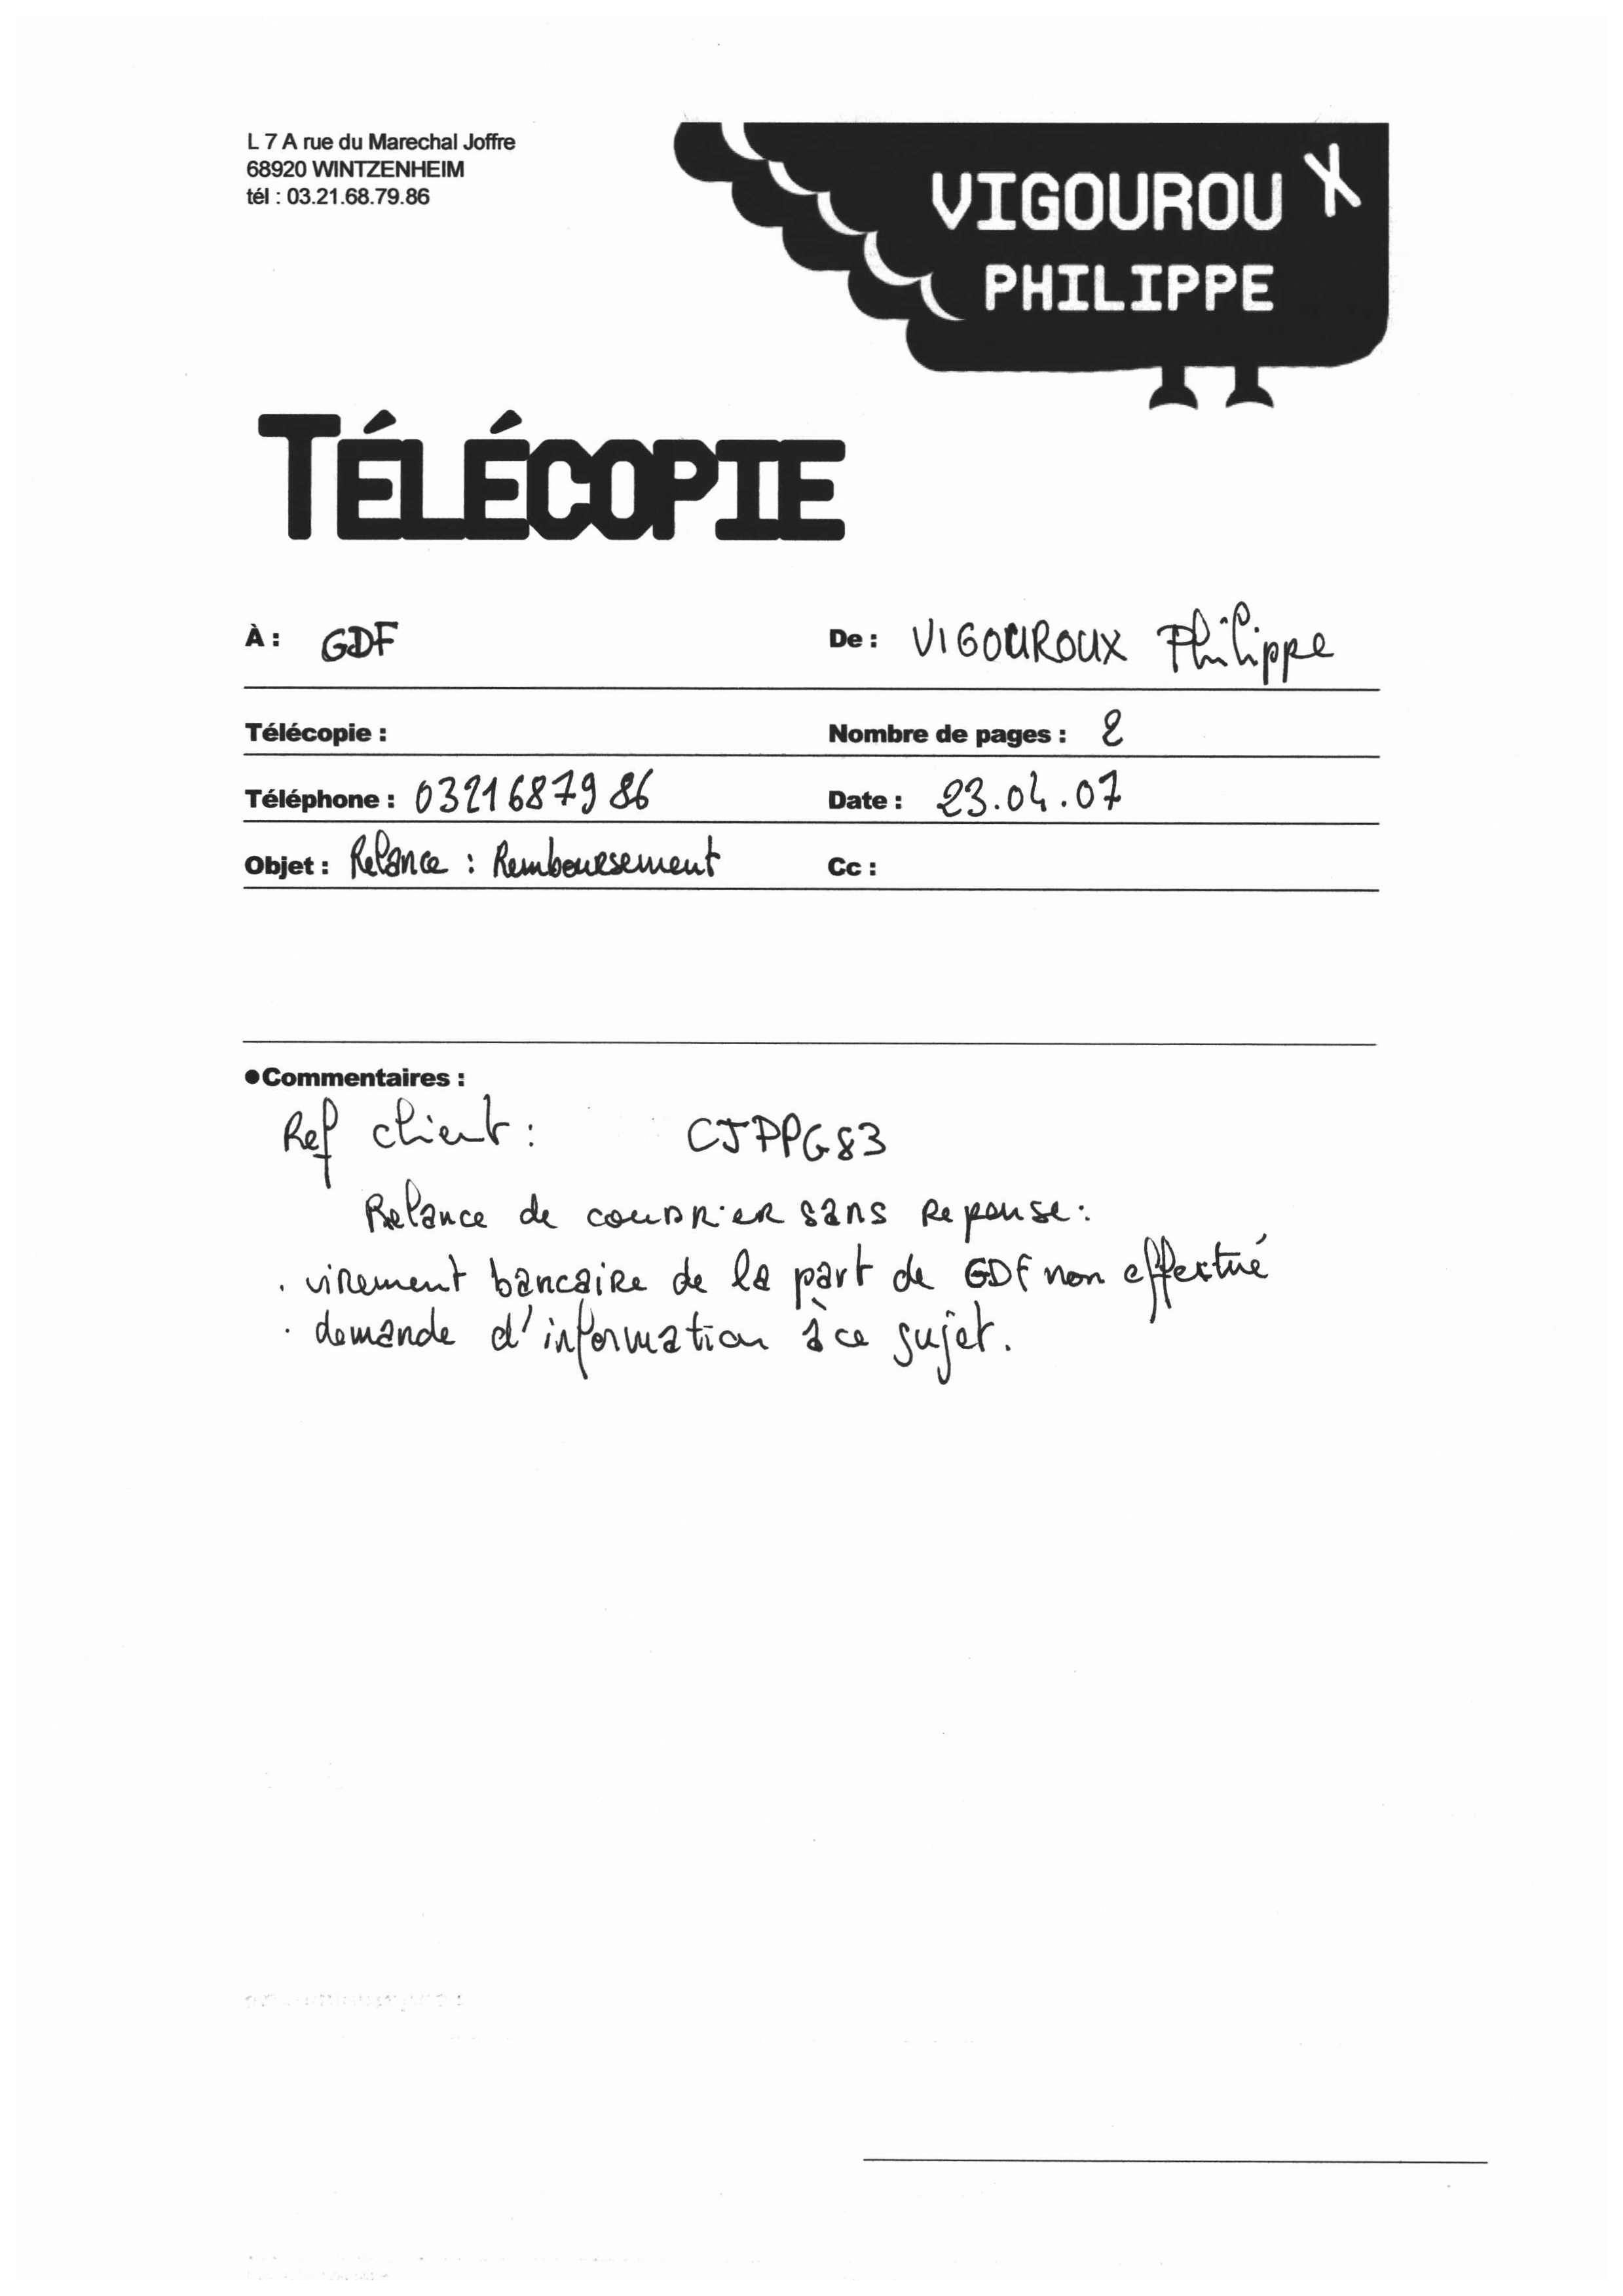 L 7 A rue du Marechal Joffre
68920 WINTZENHEIM
tél : 03.21.68.79.86
VIGOUROUX
PHILIPPE
TÉLÉCOPIE
À : GDF
De : VIGOUROUX Philippe
Télécopie :
Nombre de pages : 2
Téléphone : 0321687986
Date : 23.04.07
Objet : Relance : Remboursement
Cc :
●Commentaires :
Ref client : CJPPG83
Relance de courrier sans reponse :
. virement bancaire de la part de GDF non effectué
. demande d'information à ce sujet.